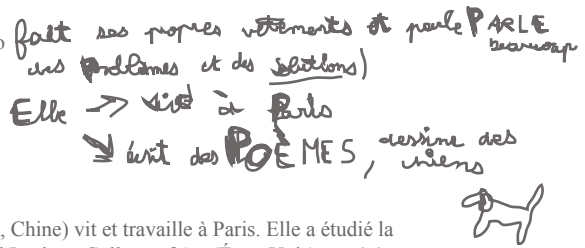 fait ses propres vêtements et parle PARLE beaucoup
des problèmes et des solutions)
Elle → vit à Paris
↘ écrit des POÈMES, dessine des chiens
, Chine) vit et travaille à Paris. Elle a étudié la